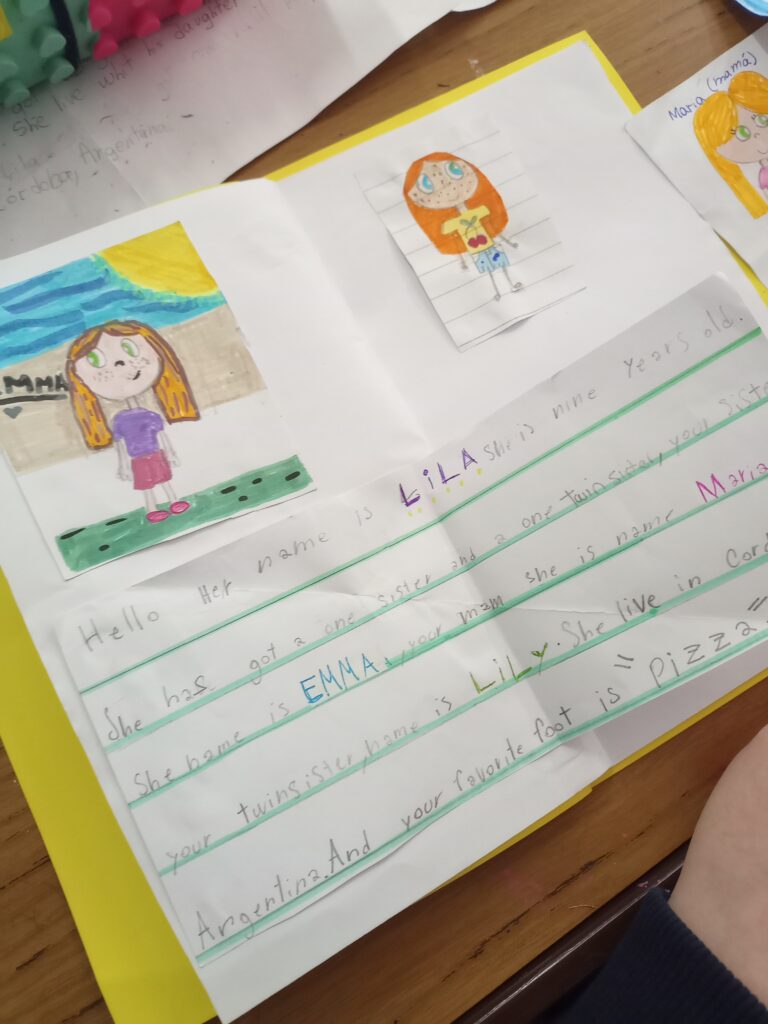 got
daughter
She live
Córdoba, Argentina.
Maria (mamá)
EMMA
Hello Her name is LiLA she is nine years old.
She has got a one sister and a one twin sister, your siste
She name is EMMA, your mam she is name Maria
your twinsister, name is LiLY. She live in Cord
Argentina. And your favorite foot is "pizza"